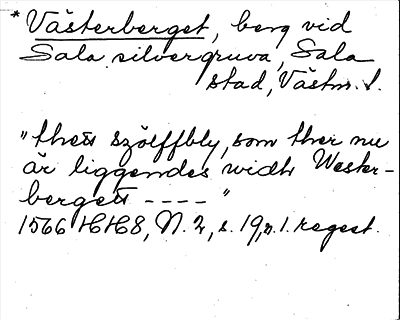 *Västerberget, berg vid
Sala silvergruva, Sala
stad, Västm. l.
"thett szölffbly, som ther nu
är liggendes widh Wester-
bergett ---- "
1566 HH8, N. 2, s. 19, r. 1. regest.